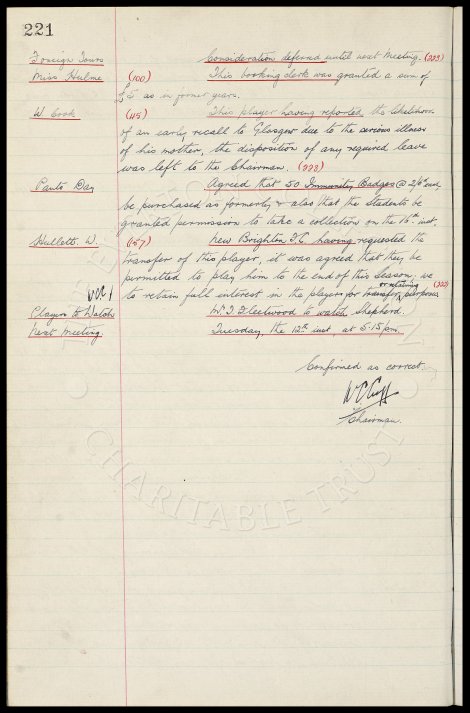 221
Foreign Tours Consideration deferred until next Meeting. (223)
Miss Hulme (100) This booking clerk was granted a sum of
£5 as in former years.
W. Cook (45) This player having reported the likelihood
of an early recall to Glasgow due to the serious illness
of his mother, the disposition of any required leave
was left to the Chairman. (223)
Panto Day Agreed that 50 Immunity Badges @ 2/6 each
be purchased as formerly & also that the Students be
granted permission to take a collection on the 16th inst.
Hullett. W. (157) New Brighton F.C. having requested the
transfer of this player, it was agreed that they be
permitted to play him to the end of this Season, we
to retain full interest in the player for transfer or retaining purposes (222)
Players to Watch Mr. J. Fleetwood to watch Shepherd.
Next Meeting. Tuesday, the 12th inst, at 5.15 pm
Confirmed as correct.
W C Cuff
Chairman.
CHARITABLE TRUST